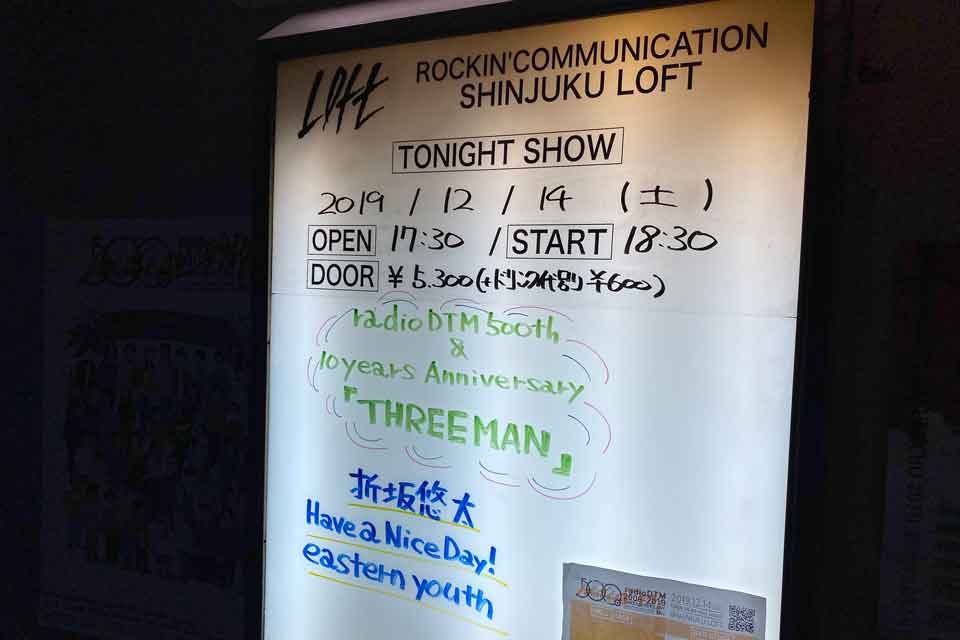 Loft
ROCKIN'COMMUNICATION
SHINJUKU LOFT
TONIGHT SHOW
2019 / 12 / 14 (土)
OPEN 17:30 / START 18:30
DOOR ¥5.300(+ドリンク代別¥600)
radio DTM 500th
&
10 years Anniversary
『THREE MAN』
折坂悠太
Have a Nice Day!
eastern youth
500
radioDTM
2009-2019
2019.12.14
SHINJUKU LOFT